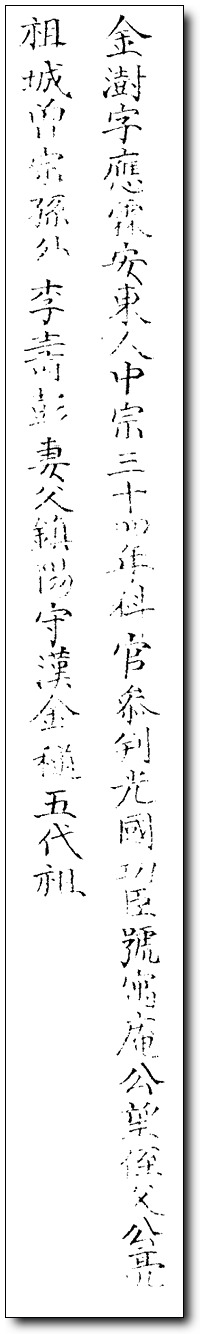 金澍字應霖安東人中宗三十四年科官參判光國功臣號寓庵公望侄父公亮
祖城曾宗孫外李壽彭妻父鎭陽守漢金穟五代祖